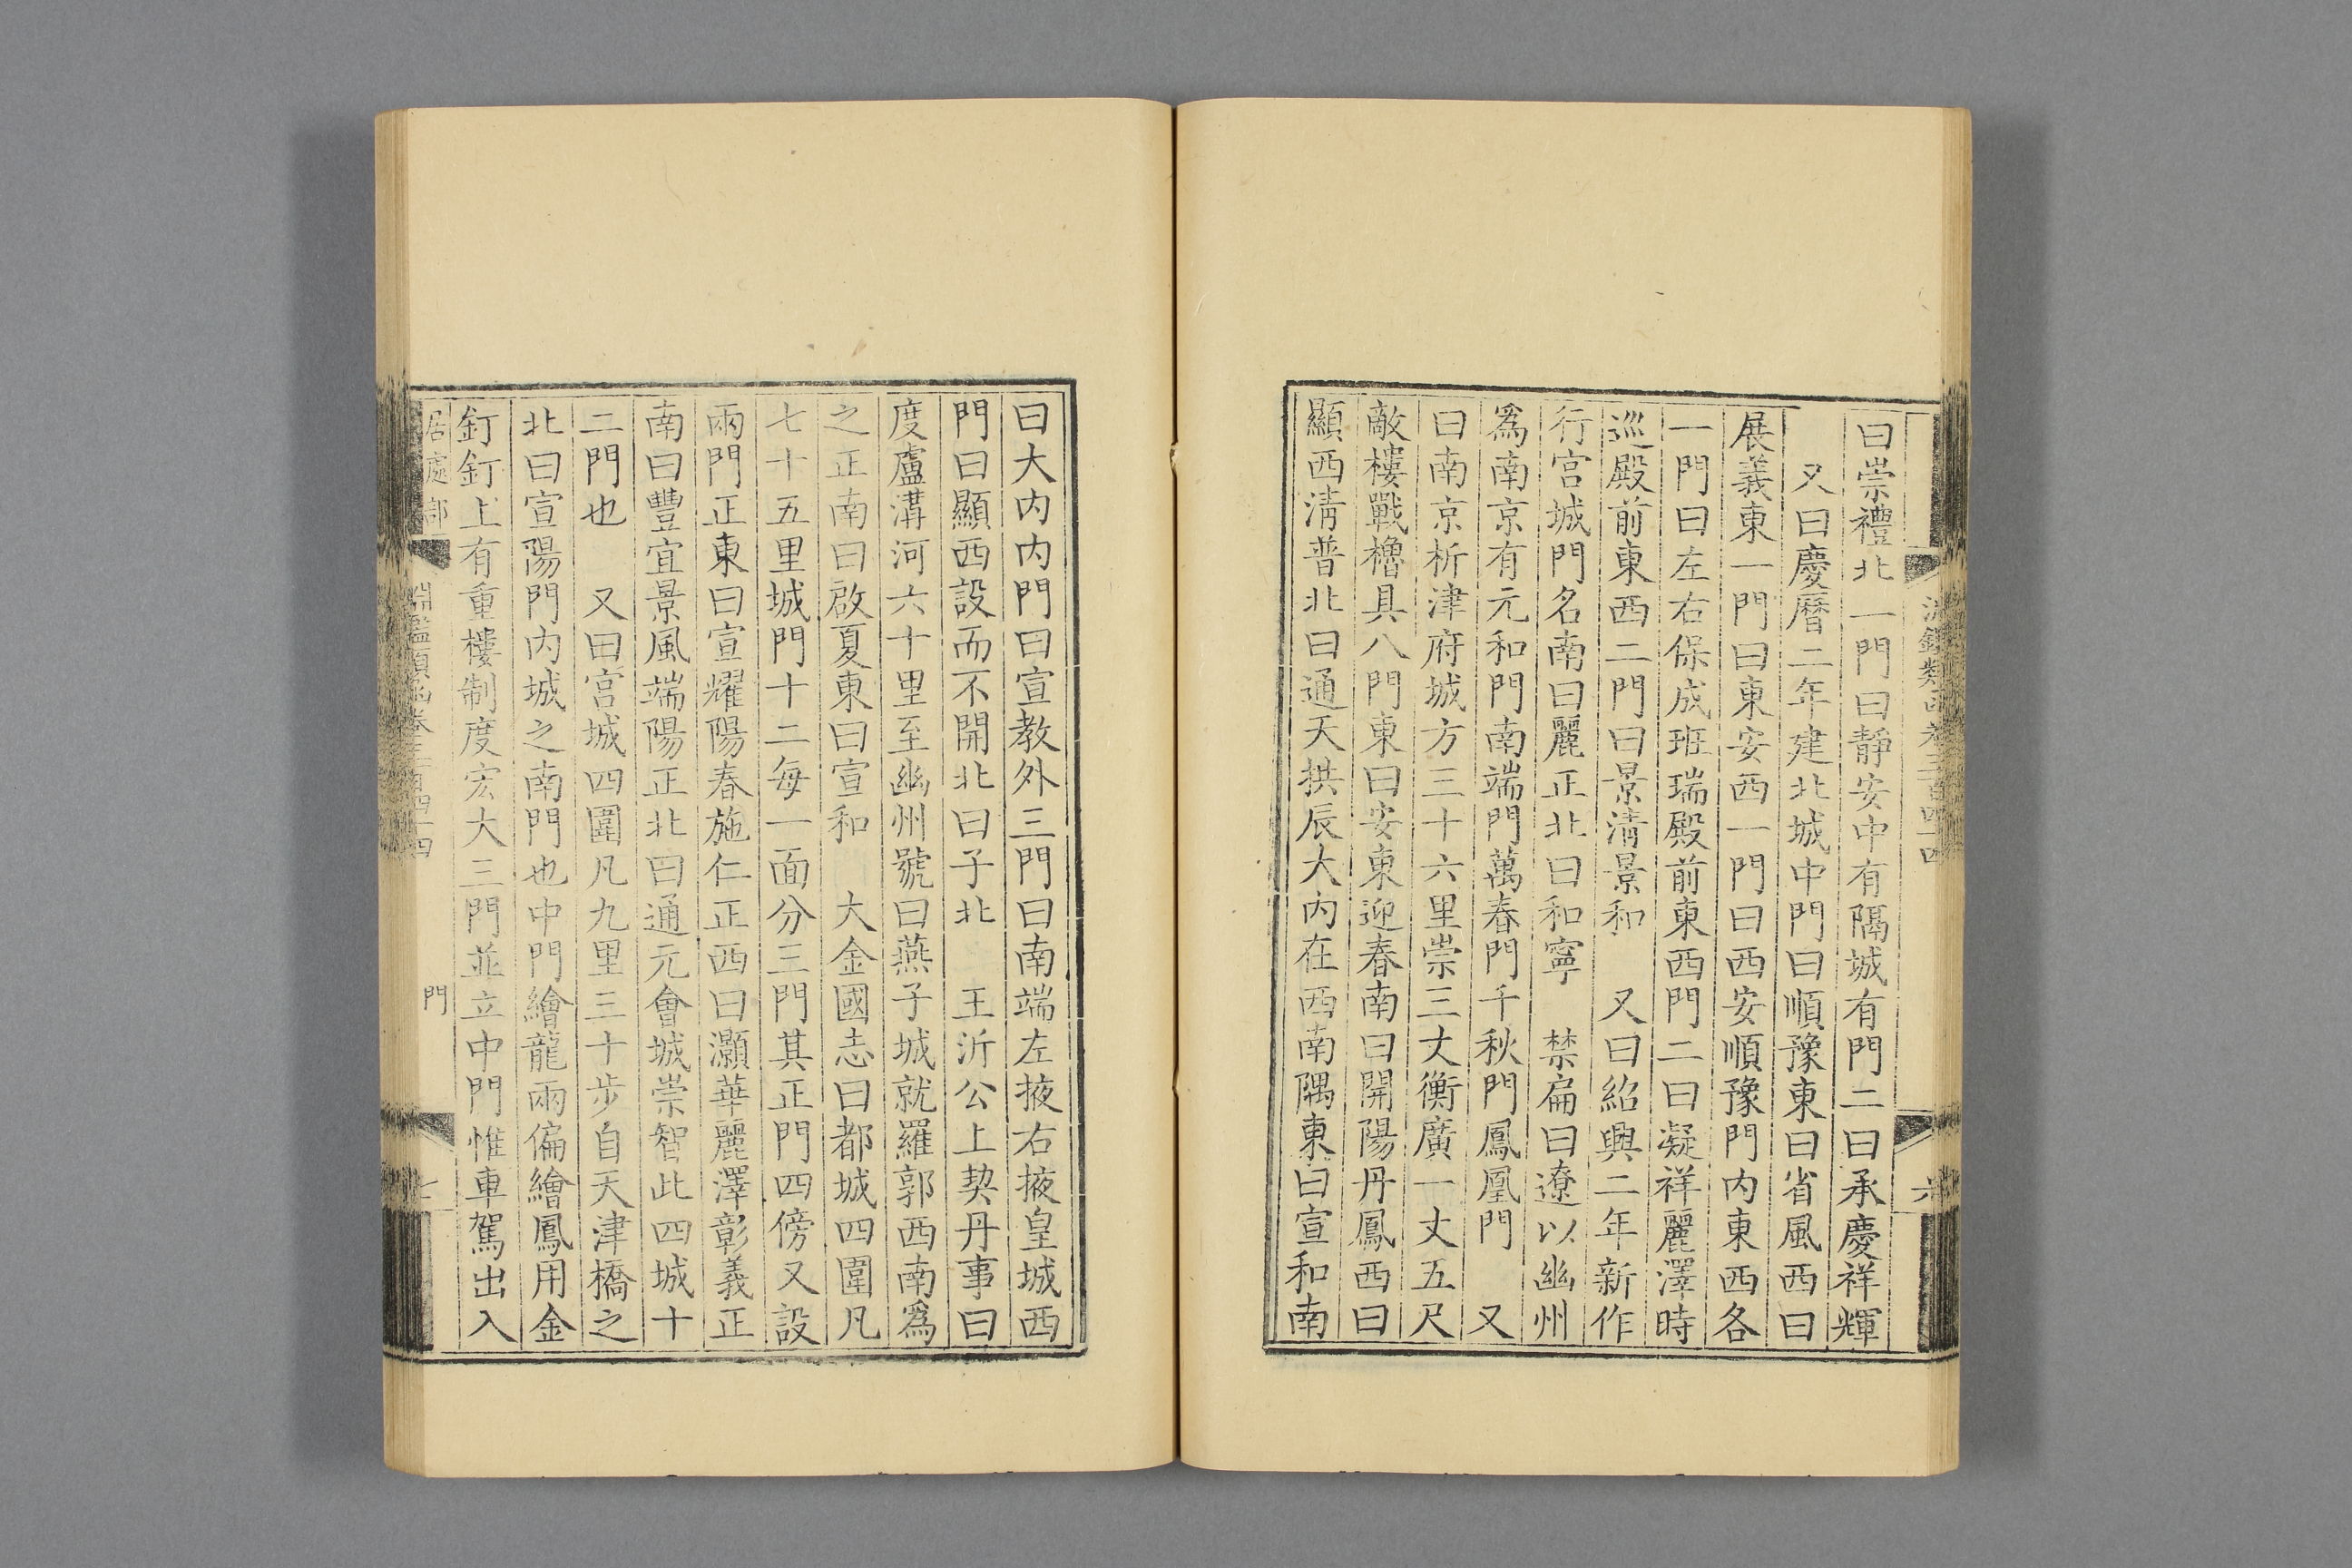 曰崇禮北一門曰靜安中有隔城有門二曰承慶祥輝
又曰慶曆二年建北城中門曰順豫東曰省風西曰
展義東一門曰東安西一門曰西安順豫門內東西各
一門曰左右保成班瑞殿前東西門二曰凝祥麗澤時
巡殿前東西二門曰景清景和　又曰紹興二年新作
行宮城門名南曰麗正北曰和寧　禁扁曰遼以幽州
爲南京有元和門南端門萬春門千秋門鳳凰門　又
曰南京析津府城方三十六里崇三丈衡廣一丈五尺
敵樓戰櫓具八門東曰安東迎春南曰開陽丹鳳西曰
顯西淸普北曰通天拱辰大內在西南隅東曰宣和南
曰大內內門曰宣教外三門曰南端左掖右掖皇城西
門曰顯西設而不開北曰子北　王沂公上契丹事曰
度盧溝河六十里至幽州號曰燕子城就羅郭西南爲
之正南曰啟夏東曰宣和　大金國志曰都城四圍凡
七十五里城門十二每一面分三門其正門四傍又設
兩門正東曰宣耀陽春施仁正西曰灝華麗澤彰義正
南曰豐宜景風端陽正北曰通元會城崇智此四城十
二門也　又曰宮城四圍凡九里三十步自天津橋之
北曰宣陽門內城之南門也中門繪龍兩偏繪鳳用金
釘釘上有重樓制度宏大三門並立中門惟車駕出入
居處部　淵鑑類函卷三百四十四　門　七